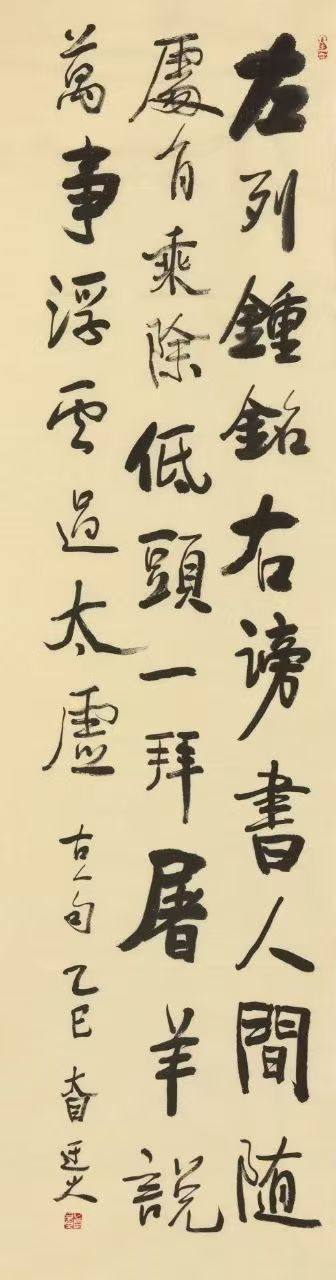 左列鍾銘右謗書人間随
處有乘除低頭一拜屠羊説
萬事浮雲過太虛
古人句乙巳